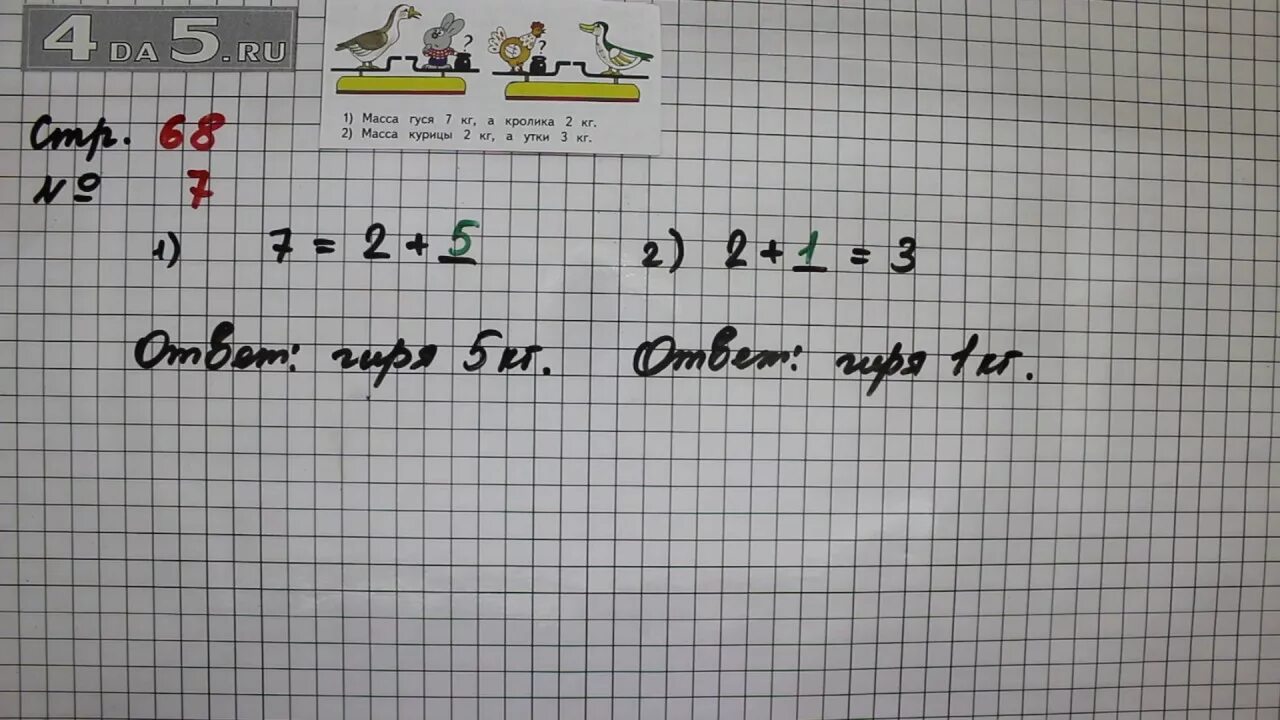 4DA5.RU
?
?
1) Масса гуся 7 кг, а кролика 2 кг.
2) Масса курицы 2 кг, а утки 3 кг.
Стр. 68
№ 7
1) 7 = 2 + 5
2) 2 + 1 = 3
Ответ: гиря 5 кг.
Ответ: гиря 1 кг.